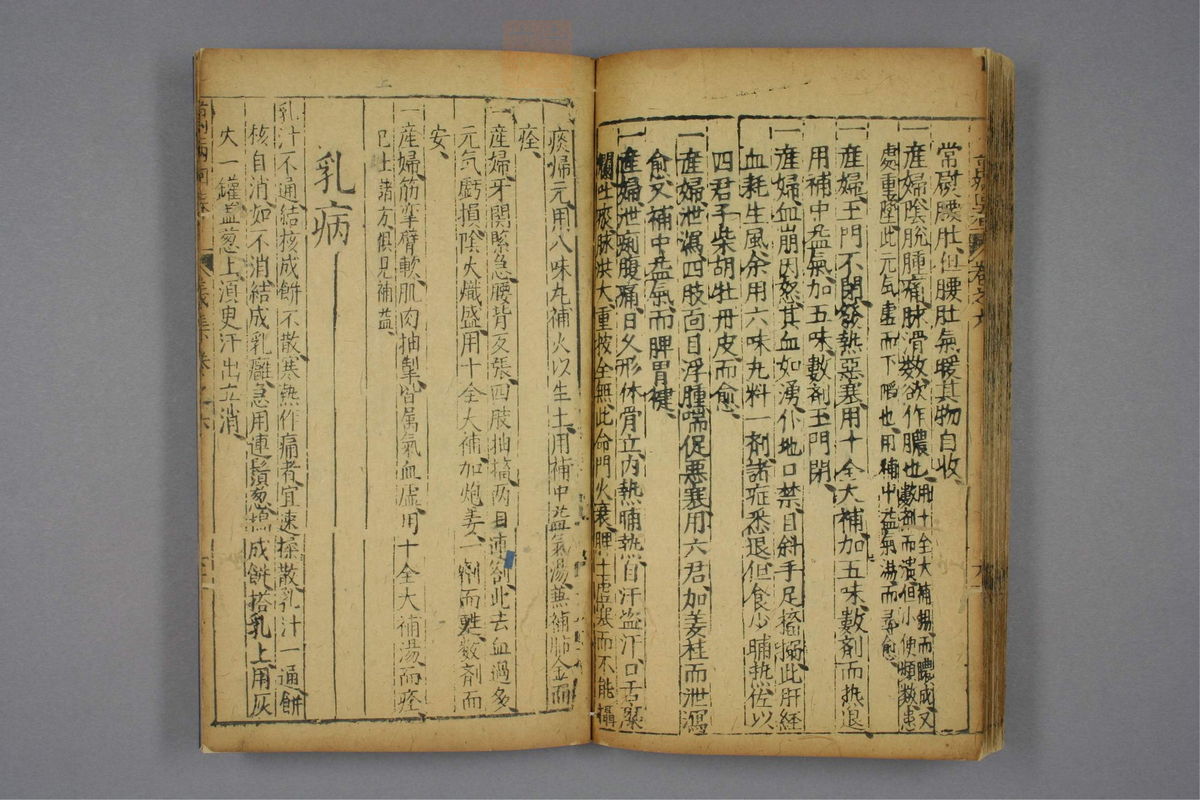 常慰腰肚但腰肚氣暖其物自收
一產婦陰脫腫痛脉滑數欲作膿也用十全大補湯而膿成又數劑而潰但小便頻數患
處重墜此元气虛而下陷也用補中益氣湯而尋愈
一產婦玉門不閉發熱惡寒用十全大補加五味數剤而热退
用補中益氣加五味數剤玉門閉
一產婦血崩因怒其血如湧仆地口禁目斜手足搐搦此肝経
血耗生風余用六味丸料一剤諸症悉退但食少晡热佐以
四君子柴胡牡丹皮而愈
一產婦泄瀉四肢面目浮腫喘促惡寒用六君加姜桂而泄瀉
愈又補中益氣而脾胃健
一產婦泄痢腹痛日久形体骨立內熱晡热自汗盗汗口舌糜
爛吐痰脉洪大重按全無此命門火衰脾土虛寒而不能攝
痰歸元用八味丸補火以生土用補中益氣湯兼補肺金而
痊
一產婦牙関緊急腰背反張四肢抽搐两目連劄此去血過多
元気虧損陰火熾盛用十全大補加炮姜一劑而甦数剤而
安
一產婦筋挛臂軟肌肉抽掣皆属氣血虚用十全大補湯而痊
已上諸方俱見補益
乳病
乳汁不通結核成餅不散寒熱作痛者宜速揉散乳汁一通餅
核自消如不消結成乳癰急用連鬚葱搗成餅搭乳上用灰
火一罐盖葱上湏臾汗出立消